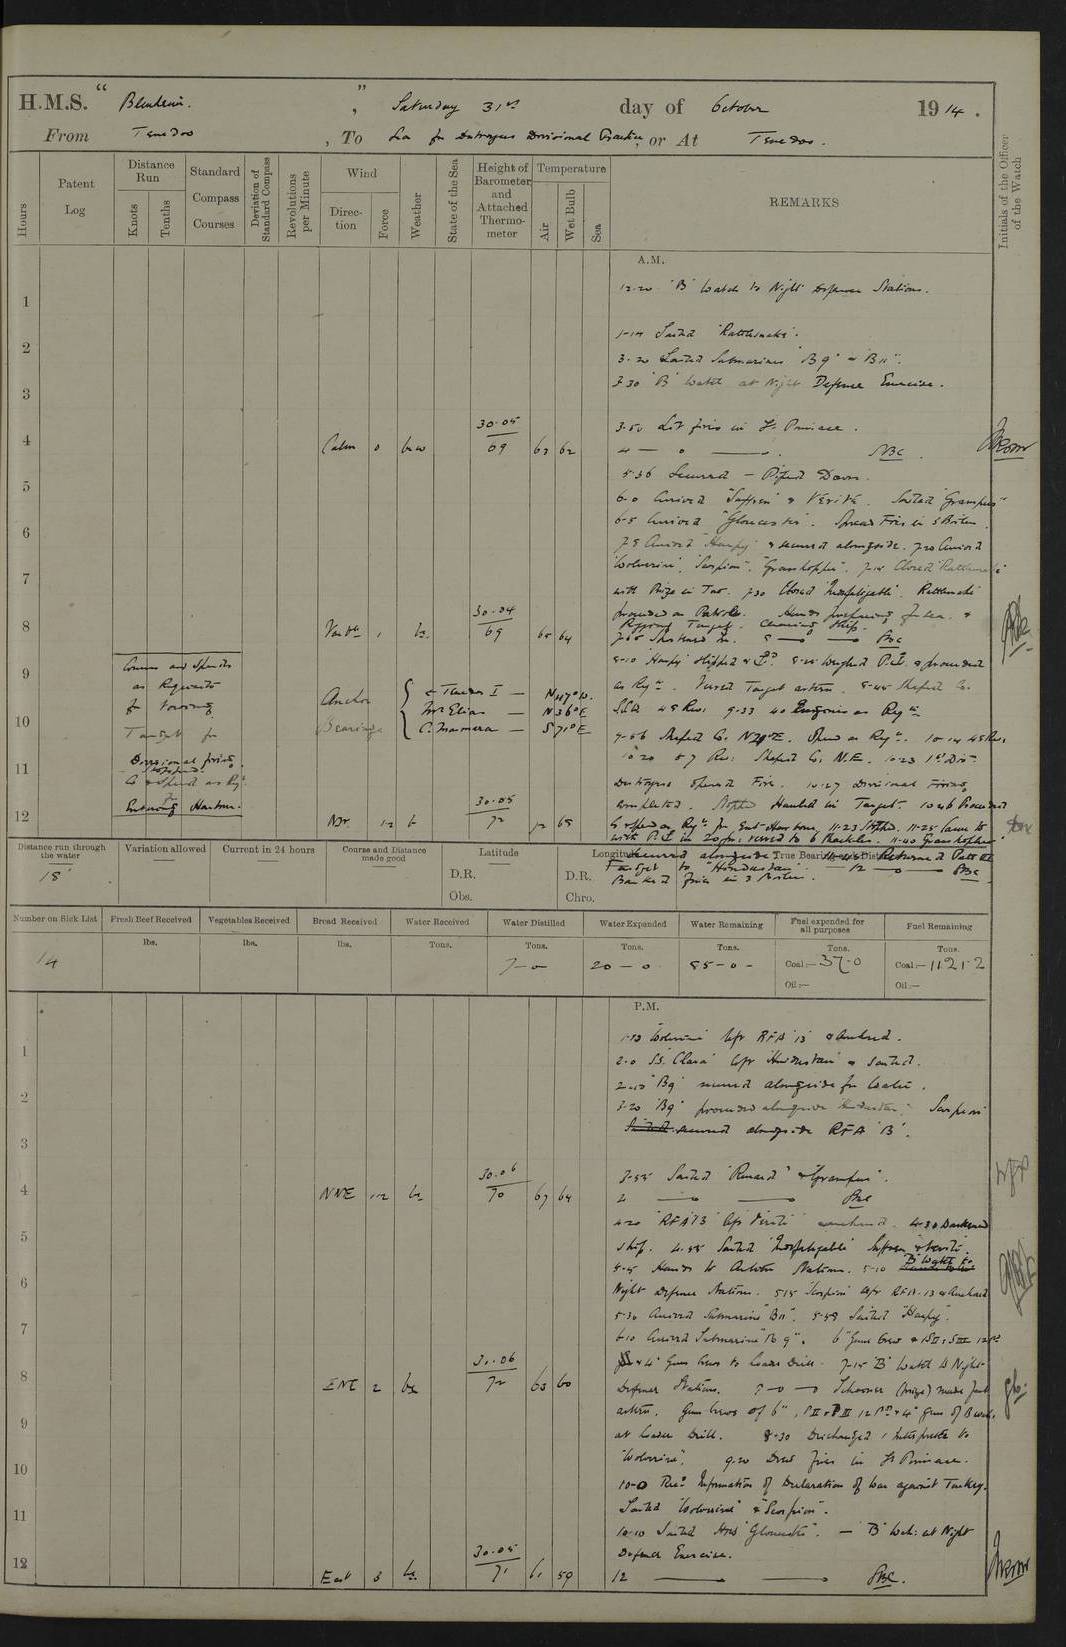 H.M.S. "Blenheim." , Saturday 31st day of October 1914.
From Tenedos , To Sea for Destroyers Divisional Practice, or At Tenedos.
Hours
Patent Log
Distance Run
Knots
Tenths
Standard Compass Courses
Deviation of Standard Compass
Revolutions per Minute
Wind
Direction
Force
Weather
State of the Sea
Height of Barometer and Attached Thermometer
Temperature
Air
Wet Bulb
Sea
REMARKS
Initials of the Officer of the Watch
A.M.
12-20 'B' Watch to Night Defence Stations.
1
1-14 Sailed 'Rattlesnake'.
2
3-20 Sailed Submarines 'B9' & 'B11'.
3-30 'B' Watch at Night Defence Exercise.
3
3-50 Lit fires in Stm Pinnace.
4 Calm 0 bcw 30.05 69 63 62 4 — 0 —
5-36 Secured — Piped Down.
5
6-0 Arrived "Suffren" & Vérité. Sailed 'Grampus'
6-5 Arrived "Gloucester". Spread Fires in 5 Boilers.
6
7-5 Arrived 'Harpy' & secured alongside. 7-20 Arrived
'Wolverine', 'Scorpion', 'Grasshopper'. 7-15 Closed 'Rattlesnake'
7
with Prize in Tow. 7-30 Closed 'Indefatigable'. Rattlesnake
proceeded on Patrol. Hands preparing for Sea. &
8 Varble 1 bc 30.04 69 65 64
Rigging Target. Cleaning Ship.
7-55 Shortened in. 8 — 0 —
8-10 'Harpy' slipped & 8-25 Weighed & proceeded
9
Courses and Speeds
as Requisite
for towing
Target for
Divisional firing.
Stopped.
Co & Speed as Reqte
for
Entering Harbour.
as Reqte. Veered Target astern. 8-45 Shaped Co.
Anchor Bearings
Tenedos I — N47°W.
Mt Elias — N36°E
C. Marmora — S71°E
10
48 Revs 9-33 40 Engines as Reqte
9-56 Shaped Co. N70°E. Speed as Reqte. 10-14 45 Revs
11
10-20 57 Revs Shaped Co. N.E. 10-23 1st Divn
Destroyers opened Fire. 10-27 Divisional Firing
completed. Stopped Hauled in Target. 10-46 Proceeded
12 Nr. 1-2 b 30.05 72 72 65
Co & Speed as Reqte for Entg Harbour, 11-23 Stopped. 11-25 Came to
with in 20 fms veered to 6 Shackles. 11-40 Grasshopper
secured alongside. 11-45 Returned Patt III
Target to "Hindustan". — 12 — 0 —
Banked fires in 3 Boilers.
Distance run through the water
18
Variation allowed
Current in 24 hours
Course and Distance made good
Latitude
D.R.
Obs.
Longitude
D.R.
Chro.
True Bearing and Distance
Number on Sick List
14
Fresh Beef Received
lbs.
Vegetables Received
lbs.
Bread Received
lbs.
Water Received
Tons.
Water Distilled
Tons.
7-0
Water Expended
Tons.
20-0
Water Remaining
Tons.
85-0-
Fuel expended for all purposes
Tons.
Coal:— 37-0
Oil:—
Fuel Remaining
Tons.
Coal:— 1121-2
Oil:—
P.M.
1-10 'Wolverine' left RFA 13 & Anchored.
1
2-0 S.S. 'Clara' left 'Hindustan' & sailed.
2-15 'B9' secured alongside for Water.
2
3-20 'B9' proceeded alongside 'Hindustan'. Scorpion
Sailed secured alongside RFA '13'.
3
3-55 Sailed 'Renard' & 'Grampus'.
4 NNE 1-2 bc 30.06 70 67 64 4 — —
4-20 'RFA 13' left 'Vérité' & anchored. 4-30 Darkened
5
ship. 4-55 Sailed 'Indefatigable' Suffren & Vérité.
5-5 Hands to Action Stations. 5-10 'B' Watch to
6
Night Defence Stations. 5-15 'Scorpion' left RFA-13 & Anchored
5-30 Arrived Submarine "B11". 5-55 Sailed "Harpy".
7
6-10 Arrived Submarine "B9". 6" Guns Crew & SII & SIII 12 Pr
& 4" Guns Crews to Loader Drill. 7-15 'B' Watch to Night
8 ENE 2 bc 30.06 72 63 60
Defence Stations. 8 — 0 — 0 Schooner (prize) made fast
astern. Guns Crews of 6", PII & PIII 12 Pr & 4" Guns of B Watch
9
at Loader Drill. 8-30 Discharged 1 Interpreter to
'Wolverine'. 9-20 Drew fires in St Pinnace.
10
10-0 Recd Information of Declaration of War against Turkey.
Sailed 'Wolverine' & "Scorpion".
11
10-10 Sailed HMS 'Gloucester'. — 'B' Wch: at Night
Defence Exercise.
12 East 3 bc 30.05 71 61 59 12 — —